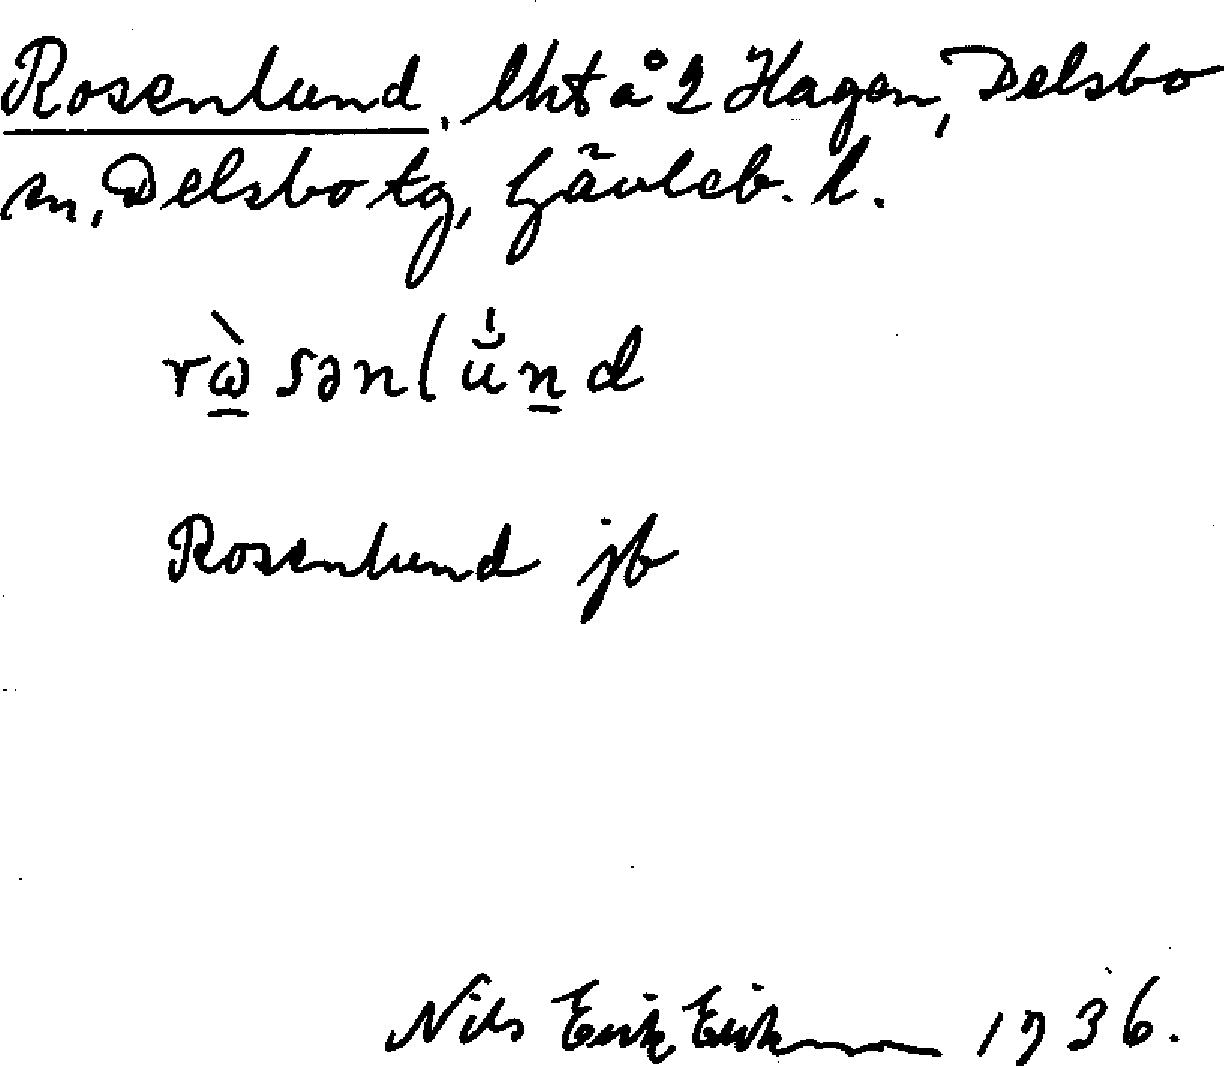 Rosenlund, lht å 2 Hagen, Delsbo
sn, Delsbo tg, Gävleb. l.
rɷ̠̀sənlŭ́n̠d
Rosenlund jb
Nils Erik Erik 1936.